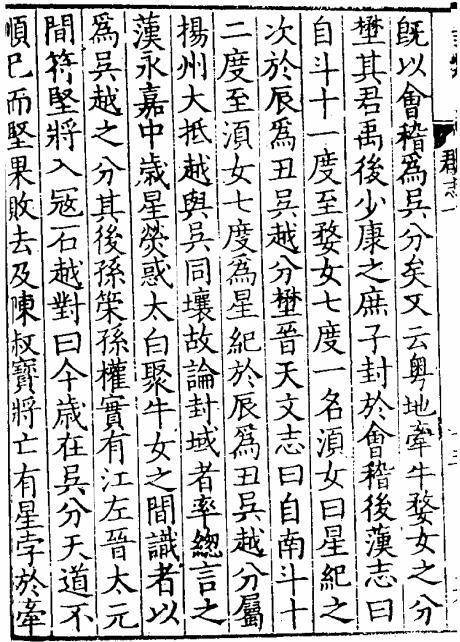 郡志一
既以會稽爲吳分矣又云粵地牽牛婺女之分
壄其君禹後少康之庶子封於會稽後漢志曰
自斗十一度至婺女七度一名湏女曰星紀之
次於辰爲丑吳越分壄晉天文志曰自南斗十
二度至湏女七度爲星紀於辰爲丑吳越分屬
揚州大抵越與吳同壤故論封域者率緫言之
漢永嘉中歲星熒惑太白聚牛女之間識者以
爲吳越之分其後孫策孫權實有江左晉太元
間符堅將入冦石越對曰今歲在吳分天道不
順巳而堅果敗去及陳叔寳將亡有星孛於牽